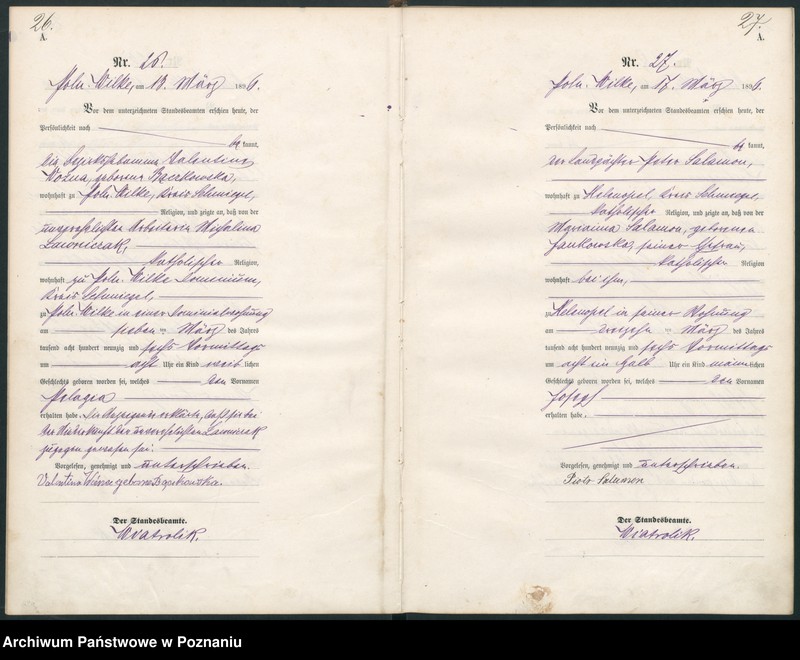 26.
A.
Nr. 26.
Poln. Wilke, am 13. März 1896.
Vor dem unterzeichneten Standesbeamten erschien heute, der
Persönlichkeit nach
be kannt,
die Bezirkshebamme Valentina
Woźna, geborene Bączkowska,
wohnhaft zu Poln. Wilke, Kreis Schmiegel,
Religion, und zeigte an, daß von der
unverehelichten Arbeiterin Michalina
Ławniczak,
katholischer Religion,
wohnhaft zu Poln. Wilke Dominium,
Kreis Schmiegel,
zu Poln. Wilke in einer Dominialwohnung
am sieben ten März des Jahres
tausend acht hundert neunzig und sechs Vormittags
um acht Uhr ein Kind weib lichen
Geschlechts geboren worden sei, welches den Vornamen
Pelagia
erhalten habe. Die Anzeigende erklärte, daß sie bei
der Niederkunft der unverehelichten Ławniczak
zugegen gewesen sei.
Vorgelesen, genehmigt und unterschrieben.
Valentina geborne
Der Standesbeamte.
Wiatrolik.
27.
A.
Nr. 27.
Poln. Wilke, am 17. März 1896.
Vor dem unterzeichneten Standesbeamten erschien heute, der
Persönlichkeit nach
be kannt,
der Peter Salamon,
wohnhaft zu Helenopol, Kreis Schmiegel,
katholischer Religion, und zeigte an, daß von der
Marianna Salamon, geborenen
Jankowska, seiner Ehefrau,
katholischer Religion
wohnhaft bei ihm,
zu Helenopol in seiner Wohnung
am März des Jahres
tausend acht hundert neunzig und sechs Vormittags
um acht ein halb Uhr ein Kind männ lichen
Geschlechts geboren worden sei, welches den Vornamen
Joseph
erhalten habe.
Vorgelesen, genehmigt und unterschrieben.
Piotr Salamon
Der Standesbeamte.
Wiatrolik.
Archiwum Państwowe w Poznaniu